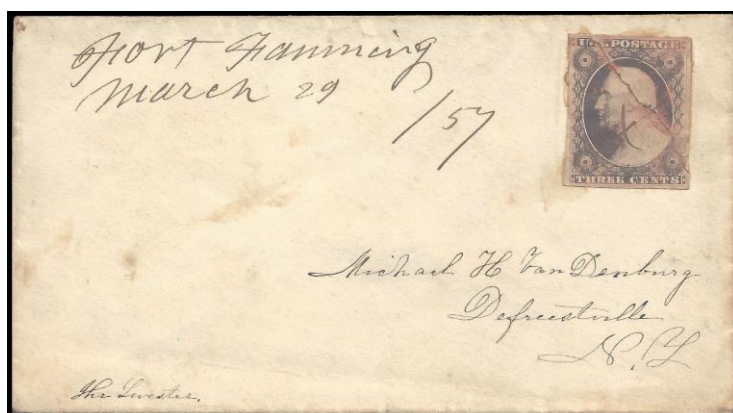 Fort Fanning
March 29
/57
U.S. POSTAGE
X
THREE CENTS
Michael H VanDenburg
Defreestville
N.Y